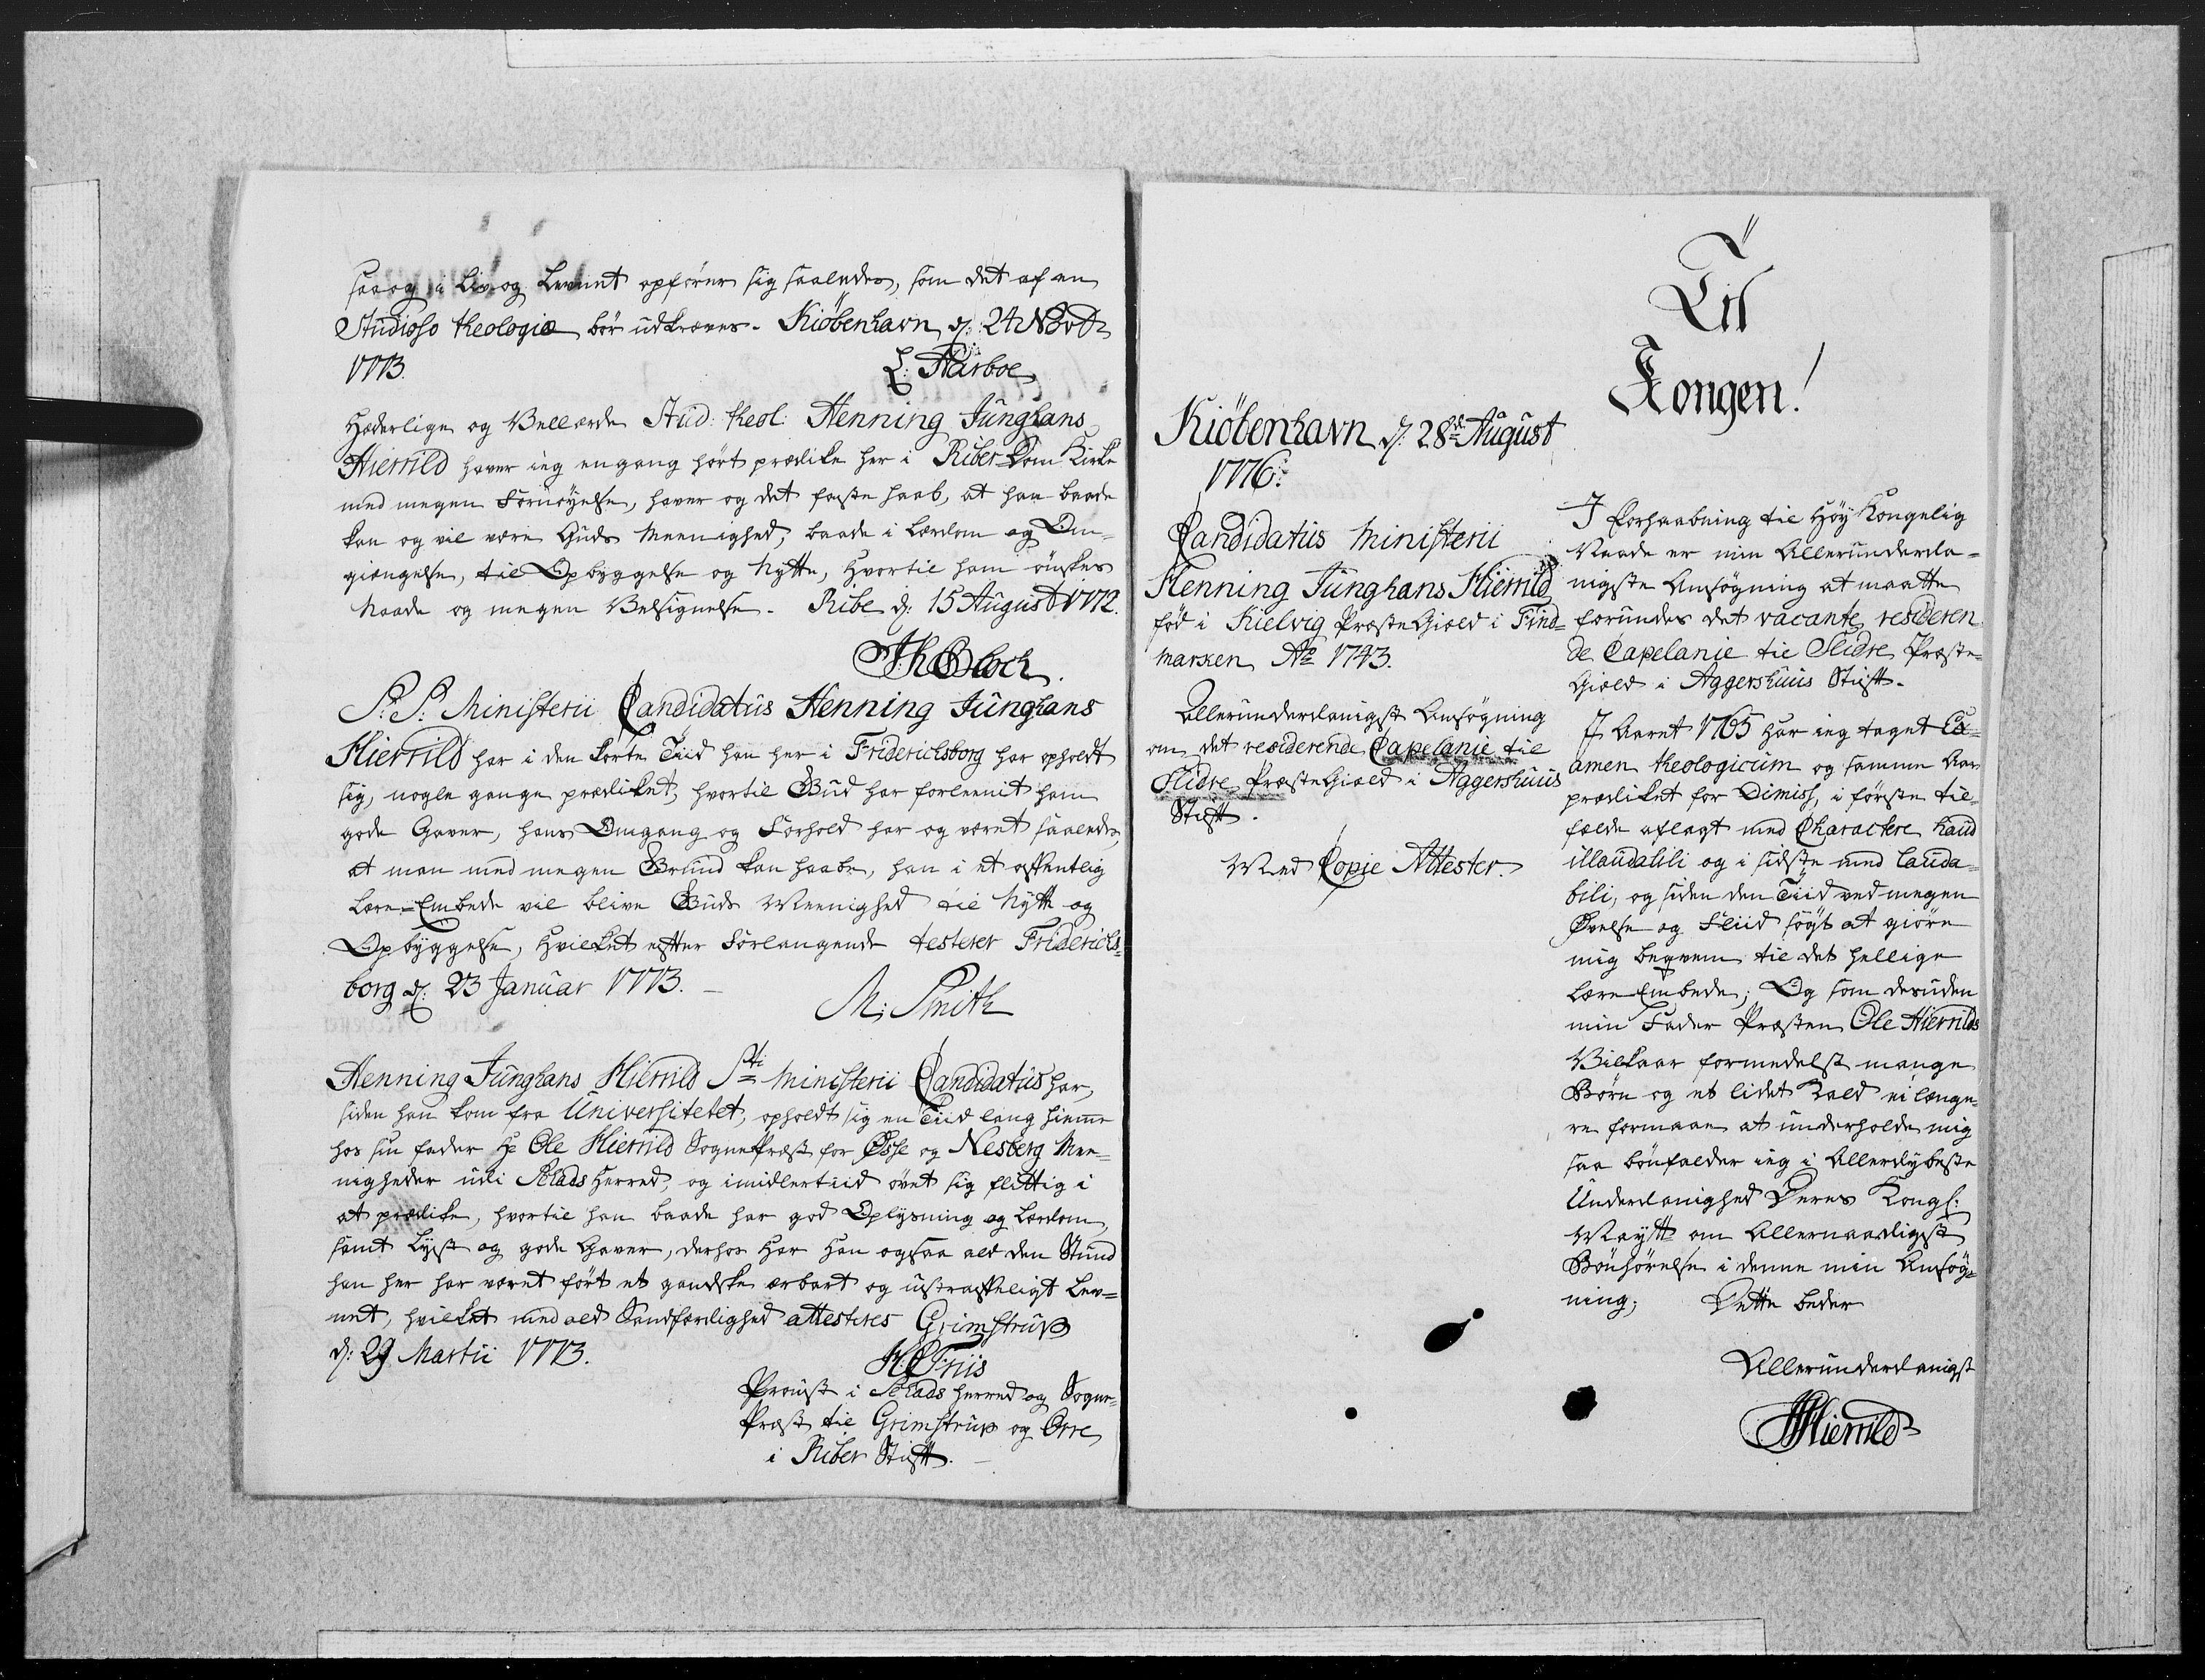 saa og i Liv og Levnet opfører sig saaledes, som det af en
Studioso theologiæ bør udkræves. Kiöbenhavn d: 24 Novbr
1773.
L: Harboe
Hæderlige og Vellærde Stud: theol: Henning Junghans
Hierrild haver ieg engang hørt prædike her i Riber Dom Kirke
med megen Fornøyelse, haver og det faste Haab, at han baade
kan og vil være Guds Meenighed, baade i Lærdom og Om-
giængelse, til Opbyggelse og Nytte, hvortil ham ønskes
Naade og megen Velsignelse. Ribe d: 15 August 1772.
Th Bloch.
S: S: Ministerii Candidatus Henning Junghans
Hierrild har i den korte Tiid han her i Friderichsborg har opholdt
sig, nogle gange prædiket, hvortil Gud har forleenit ham
gode Gaver, hans Omgang og Forhold har og været saaledes,
at man med megen Grund kan haabe, han i et offentlig
Lære-Embede vil blive Guds Meenighed til Nytte og
Opbyggelse, hvilket efter Forlangende testerer Friderichs-
borg d: 23 Januar 1773.
M: Smith
Henning Junghans Hierrild Sti Ministerii Candidatus har,
siden han kom fra Universitetet, opholdt sig en Tiid lang hiemme
hos sin Fader Hr Ole Hierrild SognePræst for Øsse og Nesberg Mee-
nigheder udi Skads Herred, og imidlertiid øvet sig flittig i
at prædike, hvortil han baade har god Oplysning og Lærdom,
samt Lyst og gode Gaver, derhos har han ogsaa ald den Stund
han her har været ført et gandske ærbart og ustraffeligt Lev=
net, hvilket med ald Sandfærdighed attesteres Grimstrup
d: 29 Martii 1773.
H C Friis
Proust i Skads Herred og Sogne-
Præst til Grimstrup og Orre
i Riber Stift.
Kiöbenhavn d: 28de August
1776.
Candidatus Ministerii
Henning Junghans Hierrild
fød i Kielvig PræsteGield i Find=
marken Ao 1743.
Allerunderdanigst Ansøgning
om det residerende Capelanie til
Slidre PræsteGield i Aggershuus
Stift.
Med Copie Attester.
Til
Kongen!
I Forhaabning til Høy Kongelig
Naade er min Allerunderda-
nigste Ansøgning at maatte
forundes det vacante resideren
de Capelanie til Slidre Præste-
Gield i Aggershuus Stift.
I Aaret 1765 har ieg taget Ex-
amen theologicum og samme Aar
prædiket for Dimiss, i første til-
fælde aflagt med Charactere haud
illaudabili og i sidste med lauda-
bili, og siden den Tiid ved megen
Øvelse og Fliid søgt at giøre
mig beqvem til det hellige
Lære-Embede; Og som desuden
min Fader Præsten Ole Hierrilds
Vilkaar formedelst mange
Børn og et lidet Kald ei længe-
re formaaer at underholde mig
saa bønfalder ieg i Allerdybeste
Underdanighed Deres Kongl:
Mayt: om Allernaadigst
Bønhørelse i denne min Ansøg-
ning; Dette beder
Allerunderdanigst
HJHierrild